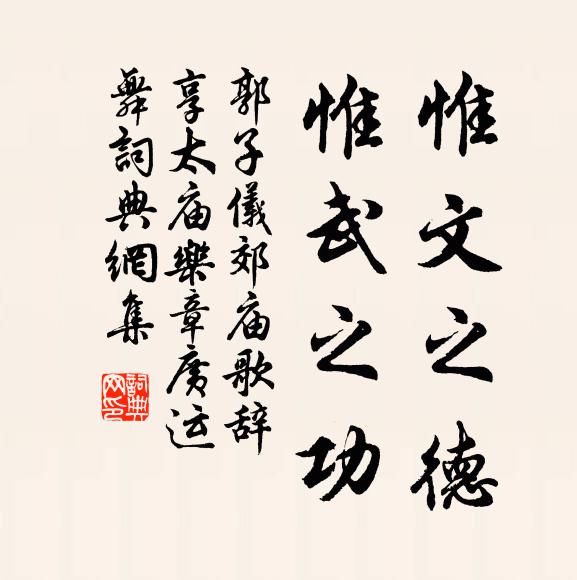 惟文之德
惟武之功
郭子儀郊庙歌辞
享太庙樂章廣运
舞詞典網集
詞典网印